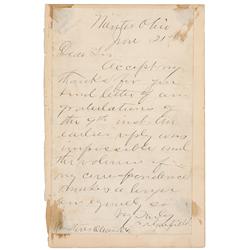 Mentor Ohio
Nov 21
Dear Sir
Accept my
thanks for your
kind letter of con
gratulations of
the 9th inst. An
earlier reply was
impossible and
the volume of
my correspondence
makes a longer
one
Very Truly
J A Garfield